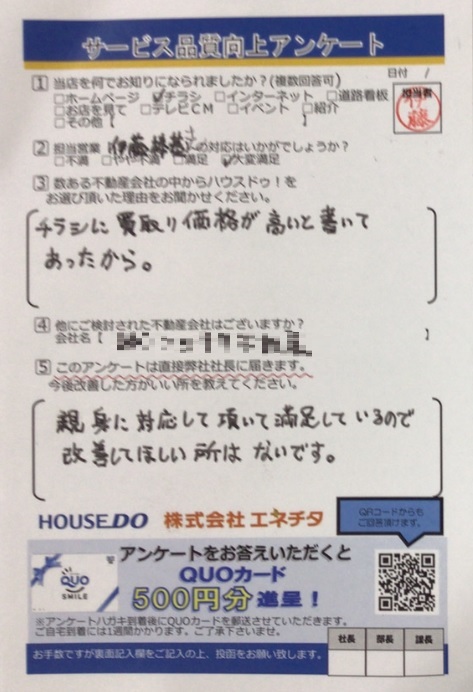 サービス品質向上アンケート
日付 /
1 当店を何でお知りになられましたか？(複数回答可)
□ホームページ ☑チラシ □インターネット □道路看板
□お店を見て □テレビCM □イベント □紹介
□その他【 】
担当者
伊藤
2 担当営業 伊藤 さんの対応はいかがでしょうか？
□不満 □やや不満 □満足 ☑大変満足
3 数ある不動産会社の中からハウスドゥ！を
お選び頂いた理由をお聞かせください。
チラシに買取り価格が高いと書いて
あったから。
4 他にご検討された不動産会社はございますか？
会社名【 】
5 このアンケートは直接弊社社長に届きます。
今後改善した方がいい所を教えてください。
親身に対応して頂いて満足しているので
改善してほしい所はないです。
HOUSEDO 株式会社 エネチタ
QRコードからも
ご回答頂けます。
アンケートをお答えいただくと
QUOカード
500円分 進呈！
QUO
SMILE
※アンケートハガキ到着後にQUOカードを郵送させていただきます。
ご自宅到着には1週間かかります。ご了承下さいませ。
社長 部長 課長
お手数ですが裏面記入欄をご記入の上、投函をお願い致します。